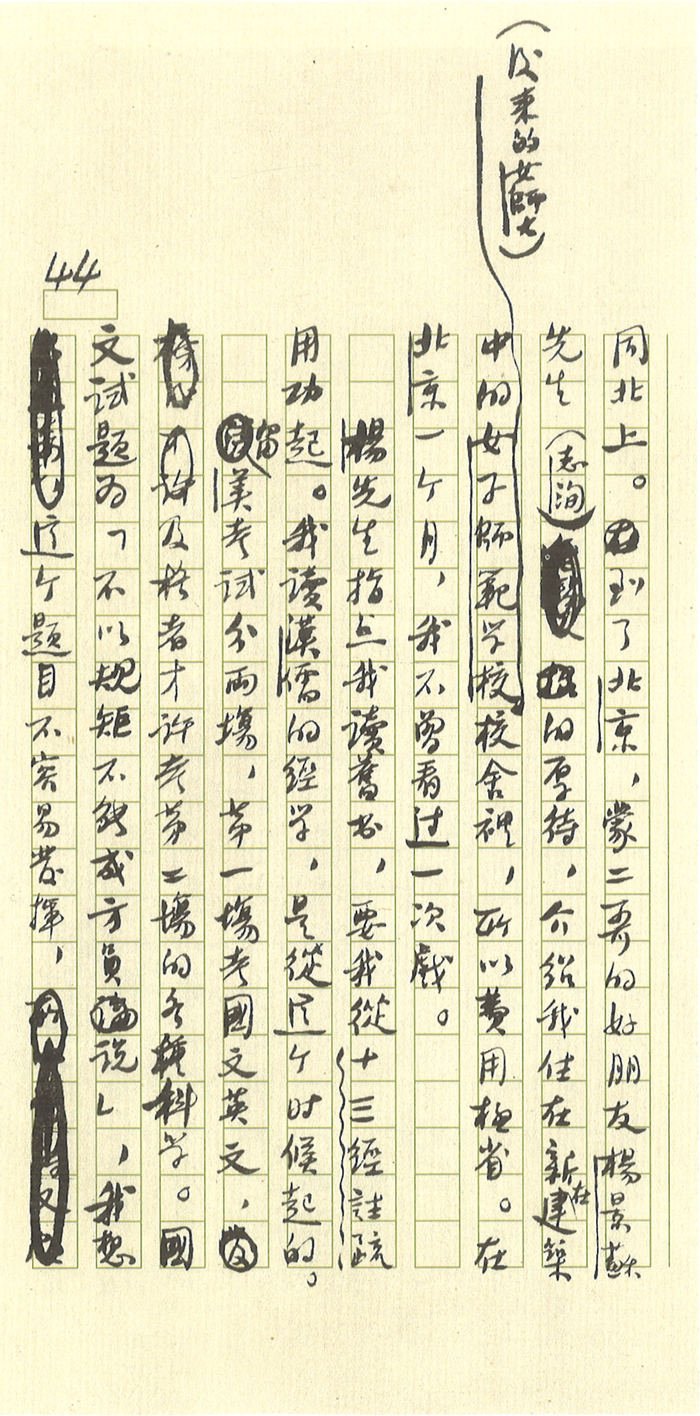 (后来的女師大)
44
同北上。到了北京,蒙二哥的好朋友楊景蘇
先生(志洵)的厚待,介紹我住在新在建築
中的女子師範学校校舍裡,所以費用極省。在
北京一个月,我不曾看过一次戲。
楊先生指点我讀舊书,要我從十三經註疏
用功起。我讀漢儒的經学,是從这个时候起的。
留美考試分兩場,第一場考國文英文,
及格者才許考第二場的各種科学。國
文試題为「不以規矩不能成方員說」,我想
这个題目不容易發揮,